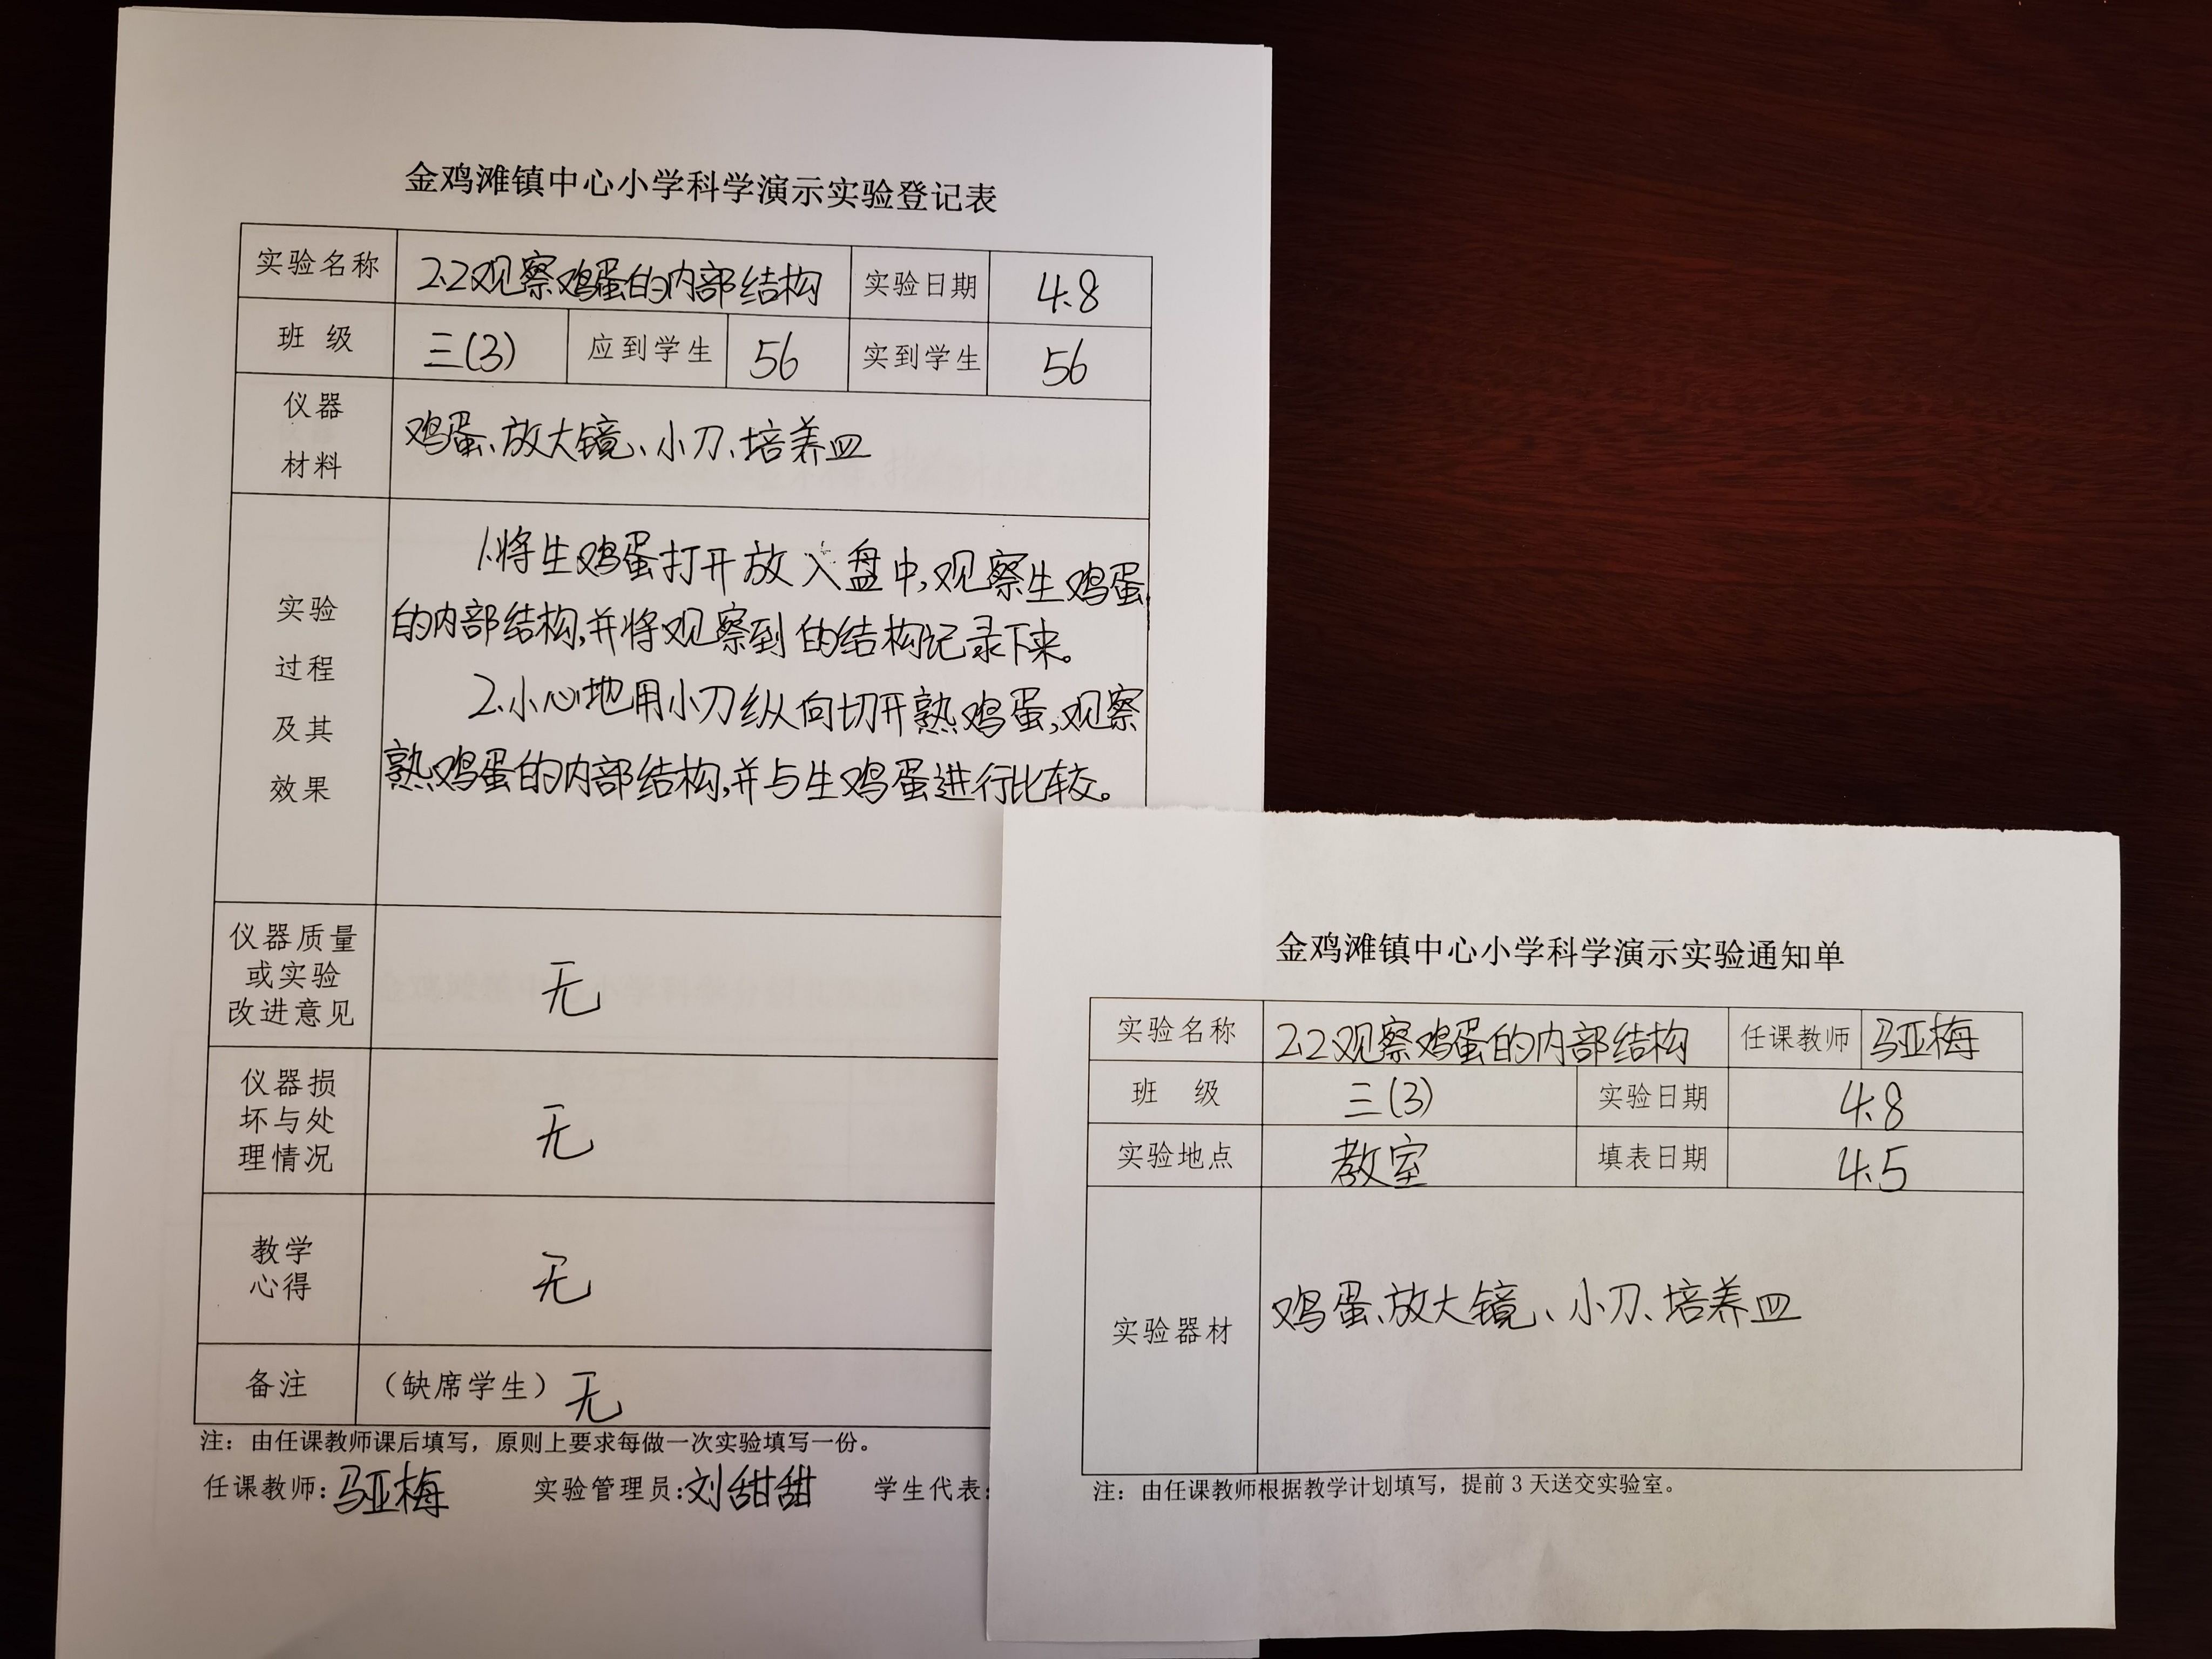 金鸡滩镇中心小学科学演示实验登记表
实验名称 2.2观察鸡蛋的内部结构 实验日期 4.8
班 级 三(3) 应到学生 56 实到学生 56
仪器
材料
鸡蛋、放大镜、小刀、培养皿
实验
过程
及其
效果
1.将生鸡蛋打开放入盘中,观察生鸡蛋
的内部结构,并将观察到的结构记录下来。
2.小心地用小刀纵向切开熟鸡蛋,观察
熟鸡蛋的内部结构,并与生鸡蛋进行比较。
仪器质量
或实验
改进意见
无
仪器损
坏与处
理情况
无
教学
心得
无
备注 （缺席学生）无
注：由任课教师课后填写，原则上要求每做一次实验填写一份。
任课教师:马亚梅 实验管理员:刘甜甜 学生代表:
金鸡滩镇中心小学科学演示实验通知单
实验名称 2.2观察鸡蛋的内部结构 任课教师 马亚梅
班 级 三(3) 实验日期 4.8
实验地点 教室 填表日期 4.5
实验器材 鸡蛋、放大镜、小刀、培养皿
注：由任课教师根据教学计划填写，提前3天送交实验室。